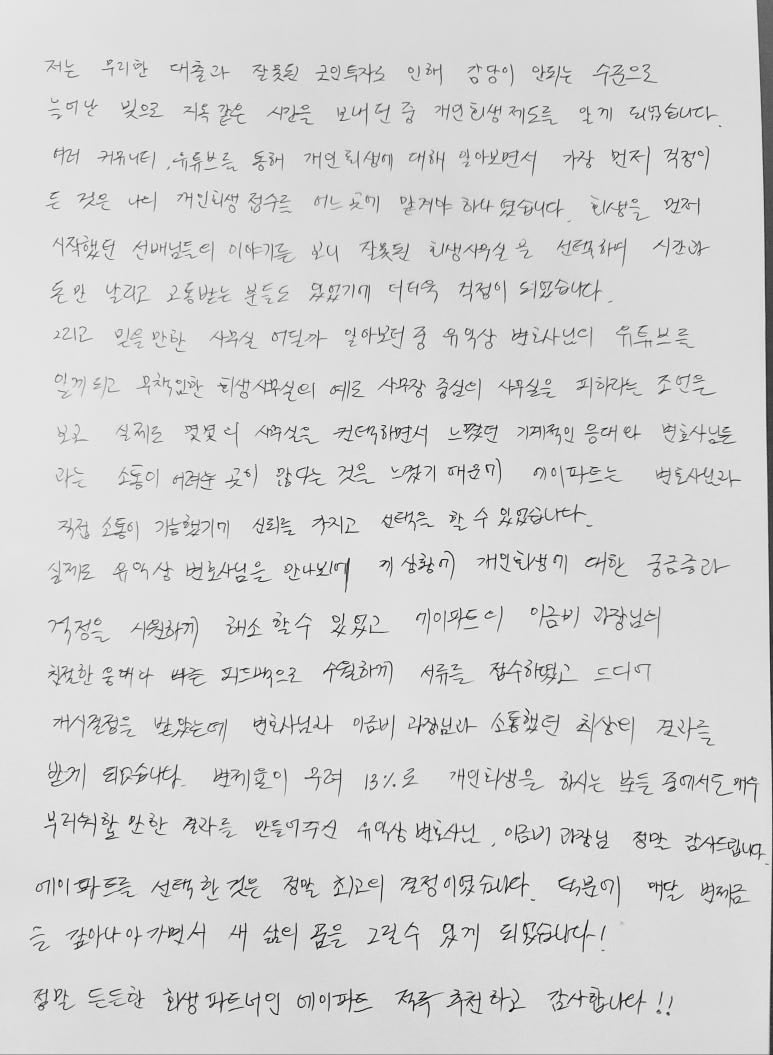 저는 무리한 대출과 잘못된 코인투자로 인해 감당이 안되는 수준으로
늘어난 빚으로 지옥 같은 시간을 보내던 중 개인회생제도를 알게 되었습니다.
여러 커뮤니티, 유튜브를 통해 개인회생에 대해 알아보면서 가장 먼저 걱정이
든 것은 나의 개인회생 접수를 어느 곳에 맡겨야 하나 였습니다. 회생을 먼저
시작했던 선배님들의 이야기를 보니 잘못된 회생사무실을 선택하여 시간과
돈만 날리고 고통받는 분들도 있었기에 더더욱 걱정이 되었습니다.
그리고 믿을만한 사무실 어딜까 알아보던 중 유익상 변호사님의 유튜브를
알게되고 무책임한 회생사무실의 예로 사무장 중심의 사무실을 피하라는 조언을
보고 실제로 몇몇의 사무실을 컨택하면서 느꼈던 기계적인 응대와 변호사님들
과는 소통이 어려운 곳이 많다는 것을 느꼈기 때문에 에이파트는 변호사님과
직접 소통이 가능했기에 신뢰를 가지고 선택을 할 수 있었습니다.
실제로 유익상 변호사님을 만나뵈어 제 상황에 개인회생에 대한 궁금증과
걱정을 시원하게 해소 할 수 있었고 에이파트의 이금비 과장님의
친절한 응대와 빠른 피드백으로 수월하게 서류를 접수하였고 드디어
개시결정을 받았는데 변호사님과 이금비 과장님과 소통했던 최상의 결과를
받게 되었습니다. 변제율이 무려 13%로 개인회생을 하시는 분들 중에서도 매우
부러워할 만한 결과를 만들어주신 유익상 변호사님, 이금비 과장님 정말 감사드립니다.
에이파트를 선택한 것은 정말 최고의 결정이었습니다. 덕분에 매달 변제금
을 갚아나아가면서 새 삶의 꿈을 그릴 수 있게 되었습니다!
정말 든든한 회생 파트너인 에이파트 적극 추천하고 감사합니다!!